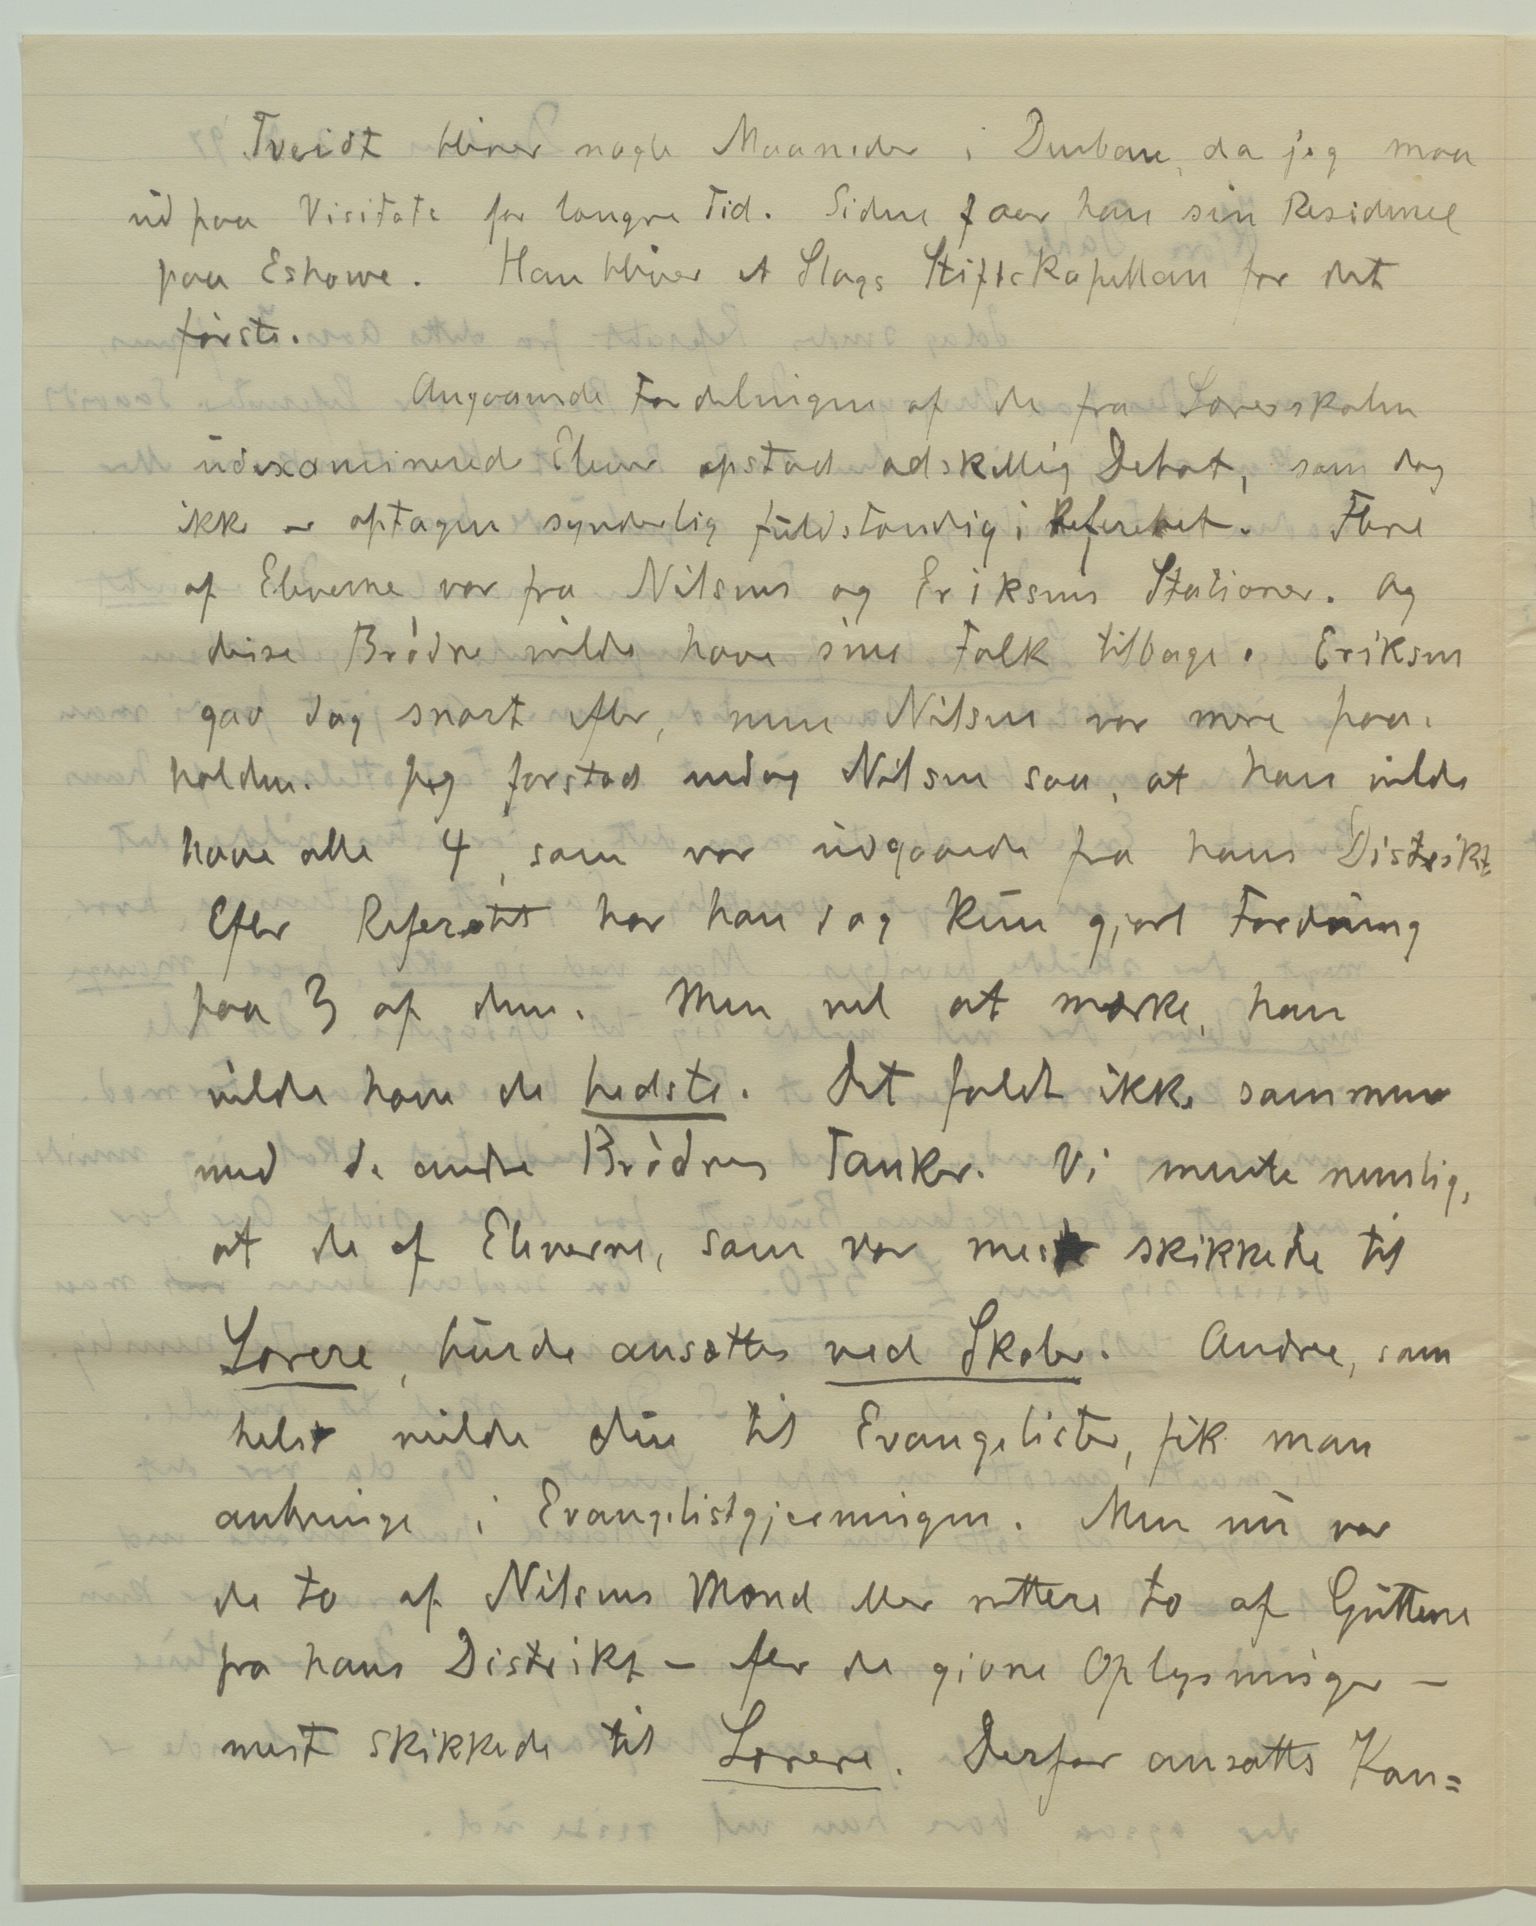 Tveidt bliver nogle Maaneder i Durban, da jeg maa
ud paa Visitats for længre Tid. Siden faar han sin Residence
paa Eshowe. Han bliver et Slags Stiftskapellan for det
første.
Angaaende Fordelingen af de fra Lærerskolen
udexaminerede Elever opstod adskillig Debat, som dog
ikke er optagen synderlig fuldstændig i Referatet. Flere
af Eleverne var fra Nilsens og Eriksens Stationer. Og
disse Brødre vilde have sine Folk tilbage. Eriksen
gav dog snart efter, men Nilsen var mere paa-
holden. Jeg forstod endog Nilsen saa, at han vilde
have alle 4, som var udgaaede fra hans Distrikt.
Efter Referatet har han dog kun gjort Fordring
paa 3 af dem. Men vel at mærke, han
vilde have de bedste. Det faldt ikke sammen
med de andre Brødres Tanker. Vi mente nemlig,
at de af Eleverne, som var mest skikkede til
Lærere, burde ansættes ved Skoler. Andre, som
helst vilde due til Evangelister, fik man
anbringe i Evangelistgjerningen. Men nu var
de to af Nilsens Mænd eller rettere to af Gutterne
fra hans Distrikt – efter de givne Oplysninger –
mest skikkede til Lærere. Derfor ansattes Kan=